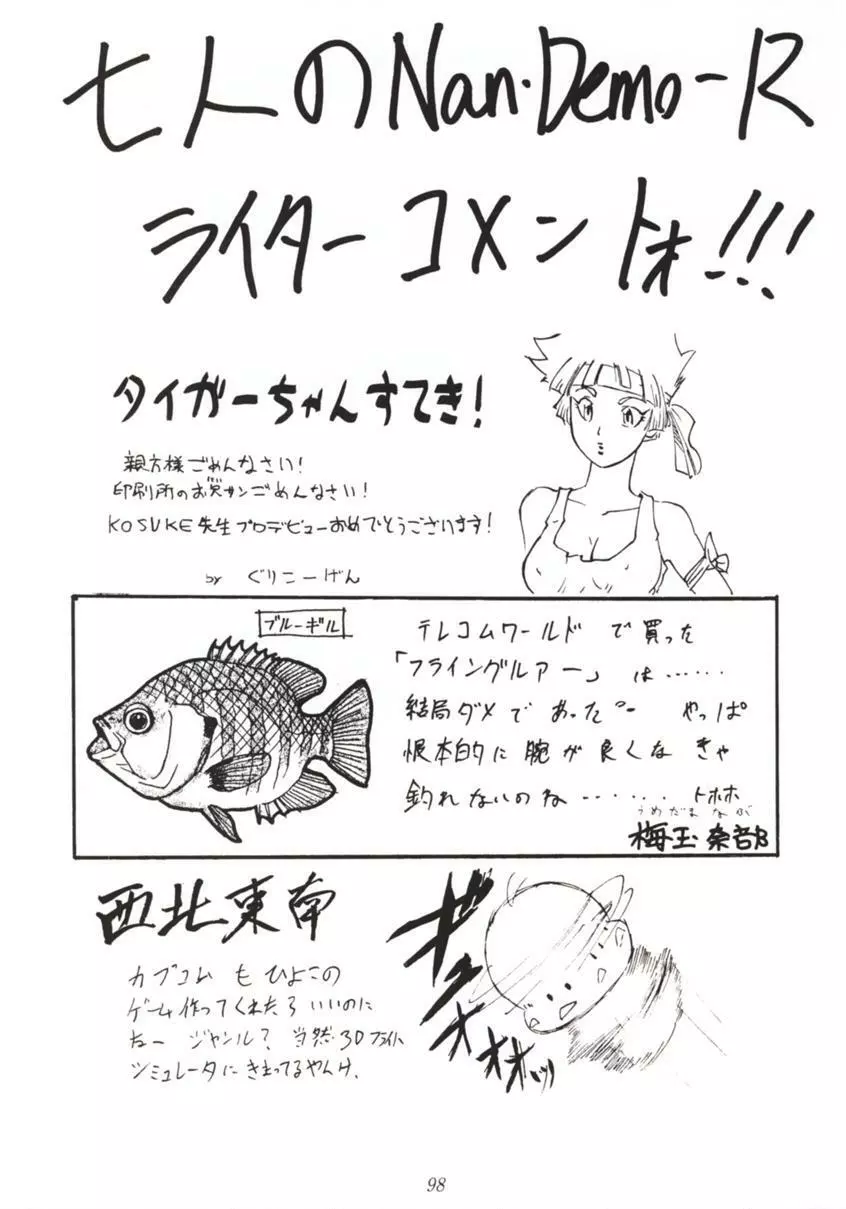 七人のNan・Demo-R
ライター コメントォ!!!
タイガーちゃんすてき!
親方様ごめんなさい!
印刷所のお賢サンごめんなさい!
KOSUKE先生プロデビューおめでとうございます!
by ぐりこーげん
ブルーギル
テレコムワールド で買った
「フライングルアー」 は……
結局ダメであった。 やっぱ
根本的に腕が良くなきゃ
釣れないのね……… トホホ
うめだまなぶ
梅玉奈部
西北東南
カプコム も ひよこの
ゲーム作ってくれたら いいのに
なー ジャンル? 当然・3Dフライト
シミュレータに きまってるやんけ、
ギュオオオオッッ
98